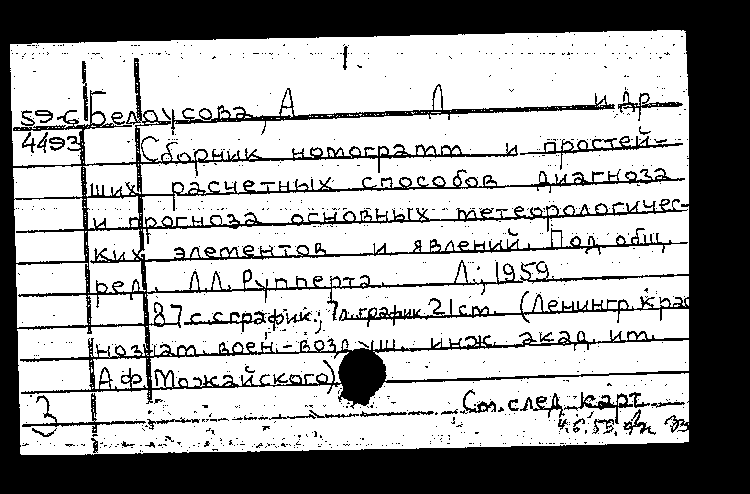 1.
59-6 Белоусова, А Д и др
4493 Сборник номограмм и простей-
ших расчетных способов диагноза
и прогноза основных метеорологичес-
ких элементов и явлений. Под общ.
ред. Л.Л. Рупперта. Л.; 1959.
87 с. с график; 7 л. график. 21 см. (Ленингр. крас
нознам. воен.-воздуш. инж. акад. им.
А.Ф. Можайского)
См. след. карт.
3